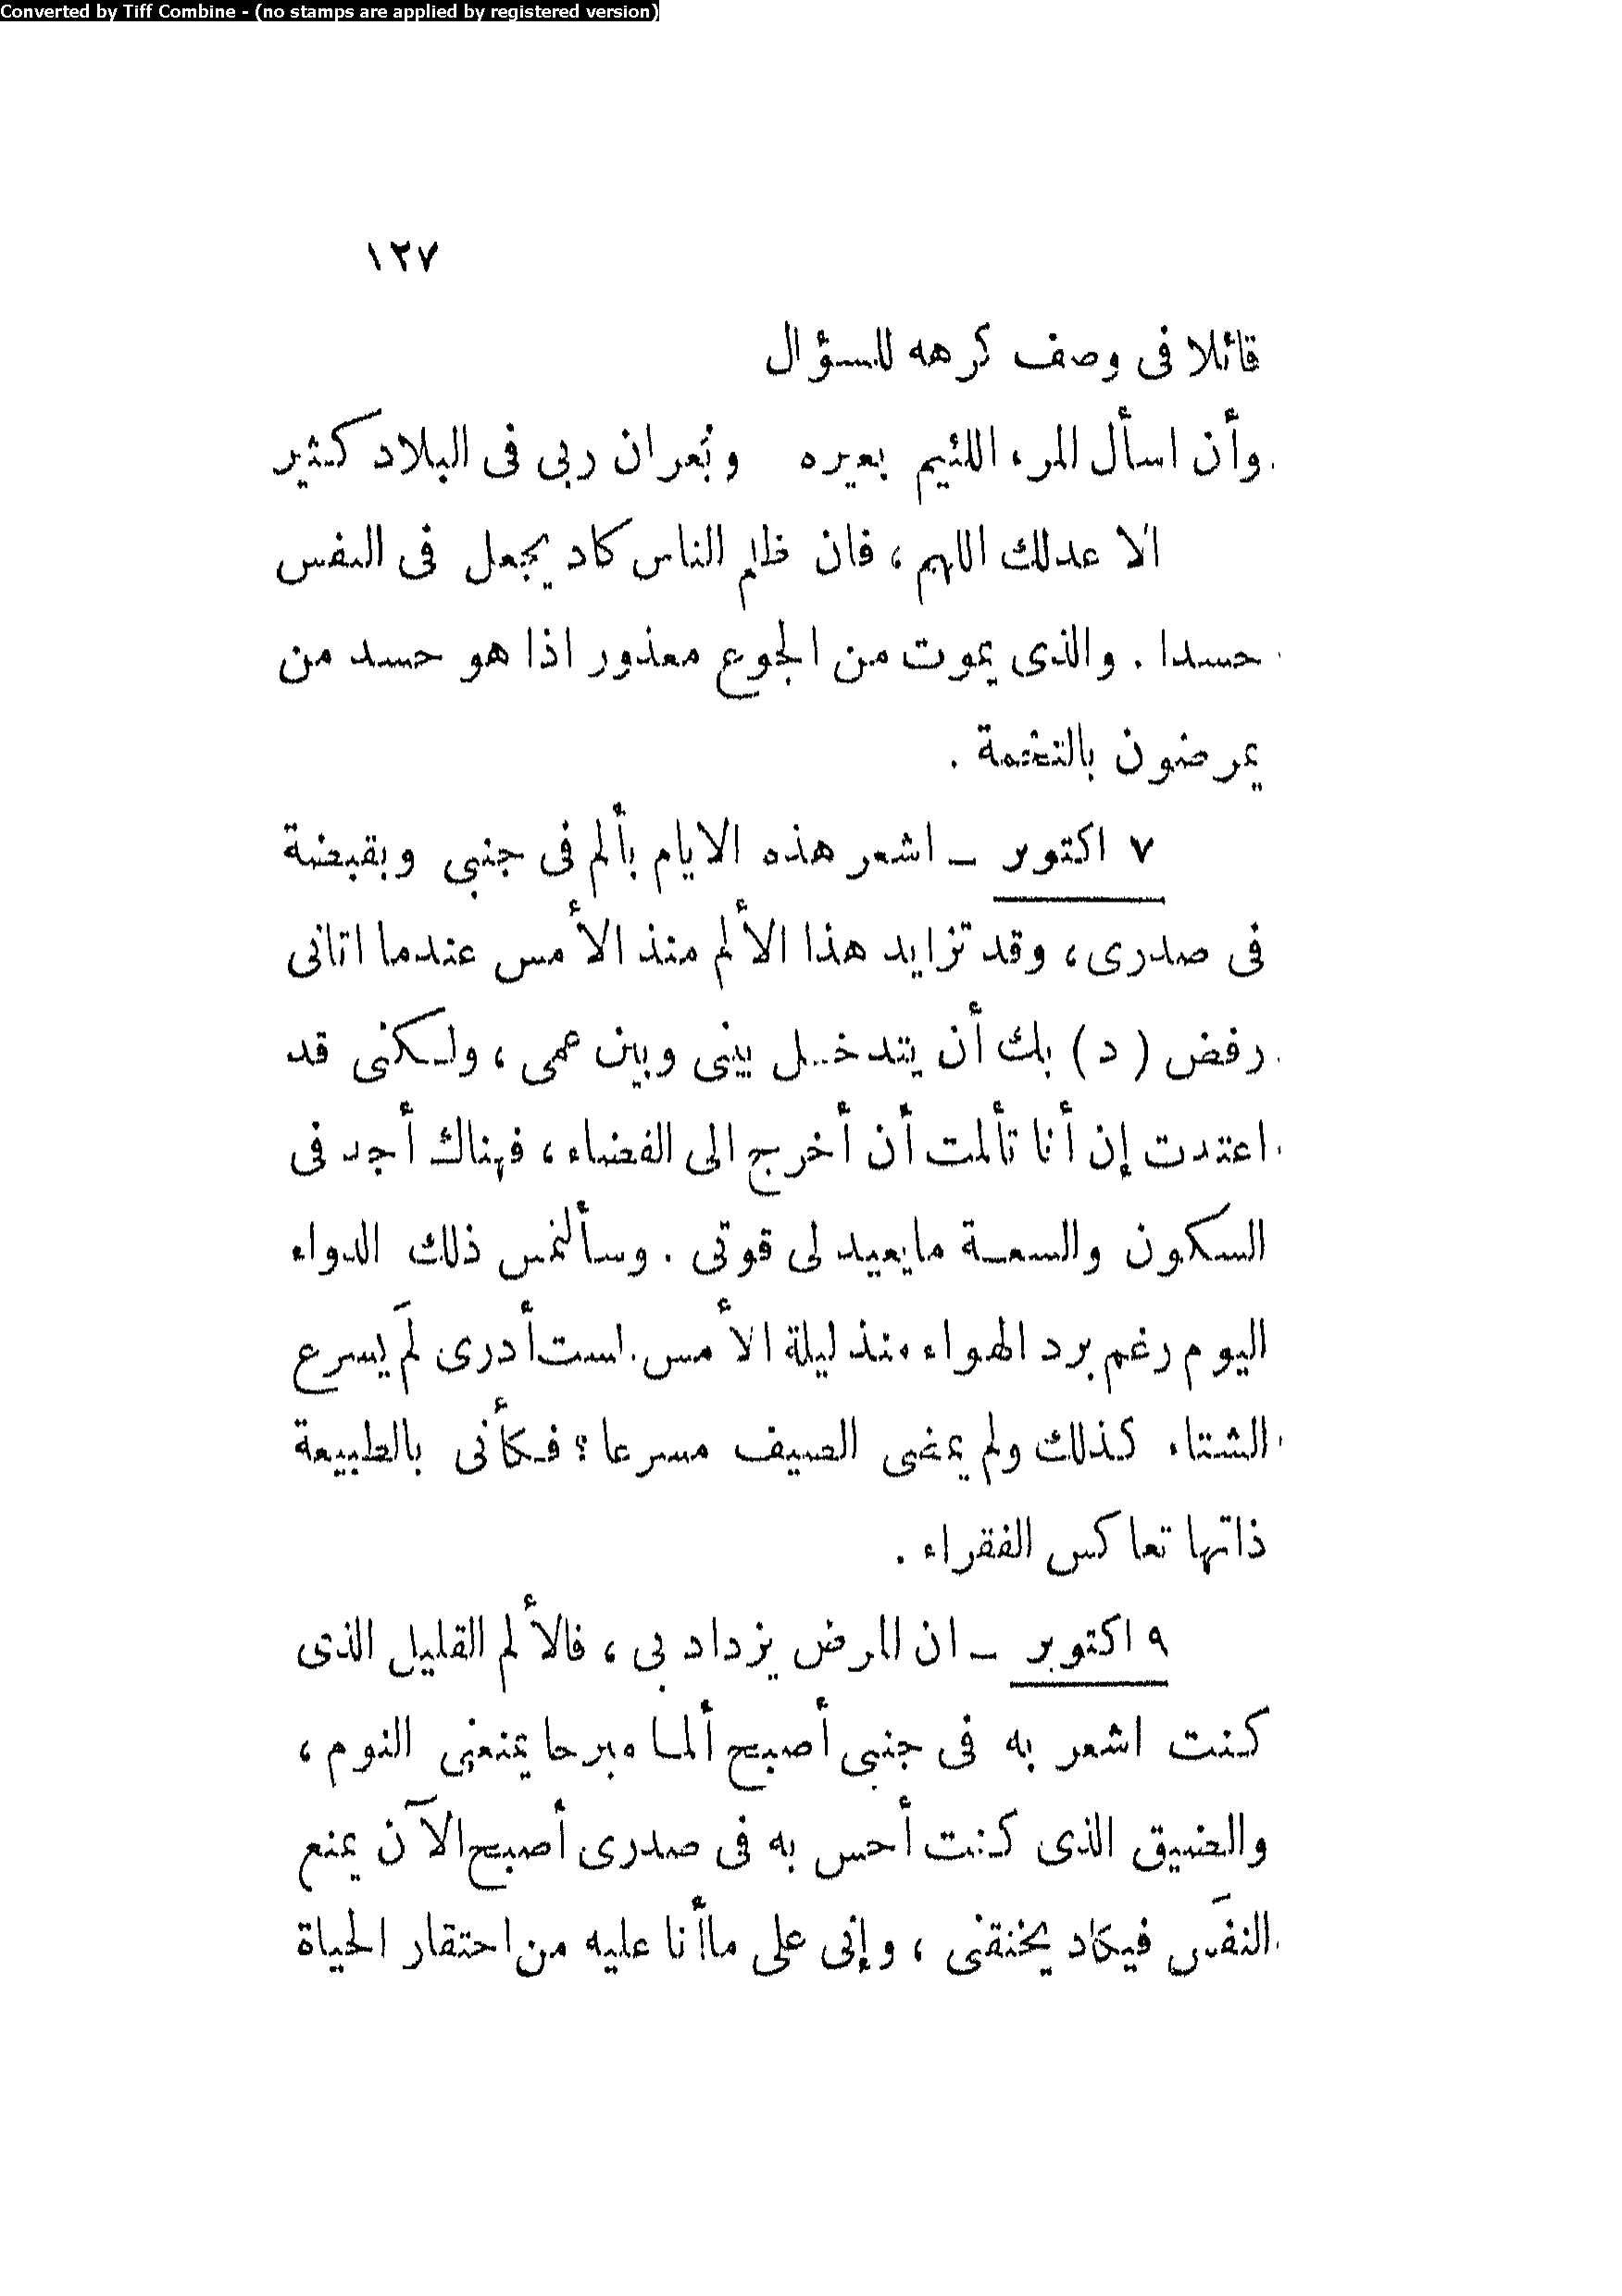 Converted by Tiff Combine - (no stamps are applied by registered version)
١٢٧
قائلا فى وصف كرهه للسؤال
وأن اسأل المرء اللئيم بعيره وبُعران ربى فى البلاد كثير
الا عدلك اللهم ، فان ظلم الناس كاد يجعل فى النفس
حسدا . والذى يموت من الجوع معذور اذا هو حسد من
يمرضون بالتخمة .
٧ اكتوبر – اشعر هذه الايام بألم فى جنبى وبقبضة
فى صدرى ، وقد تزايد هذا الألم منذ الأمس عندما اتانى
رفض ( د ) بك أن يتدخل بينى وبين عمى ، ولكنى قد
اعتدت إن أنا تألمت أن أخرج الى الفضاء ، فهناك أجد فى
السكون والسعة مايعيد لى قوتى . وسألتمس ذلك الدواء
اليوم رغم برد الهواء منذ ليلة الأمس . لست أدرى لمَ يسرع
الشتاء كذلك ولم يمضى الصيف مسرعا ؟ فكأنى بالطبيعة
ذاتها تعاكس الفقراء .
٩ اكتوبر – ان المرض يزداد بى ، فالألم القليل الذى
كنت اشعر به فى جنبى أصبح ألما مبرحا يمنعنى النوم ،
والضيق الذى كنت أحس به فى صدرى أصبح الآن يمنع
النفَس فيكاد يخنقنى ، وإنى على ماأنا عليه من احتقار الحياة